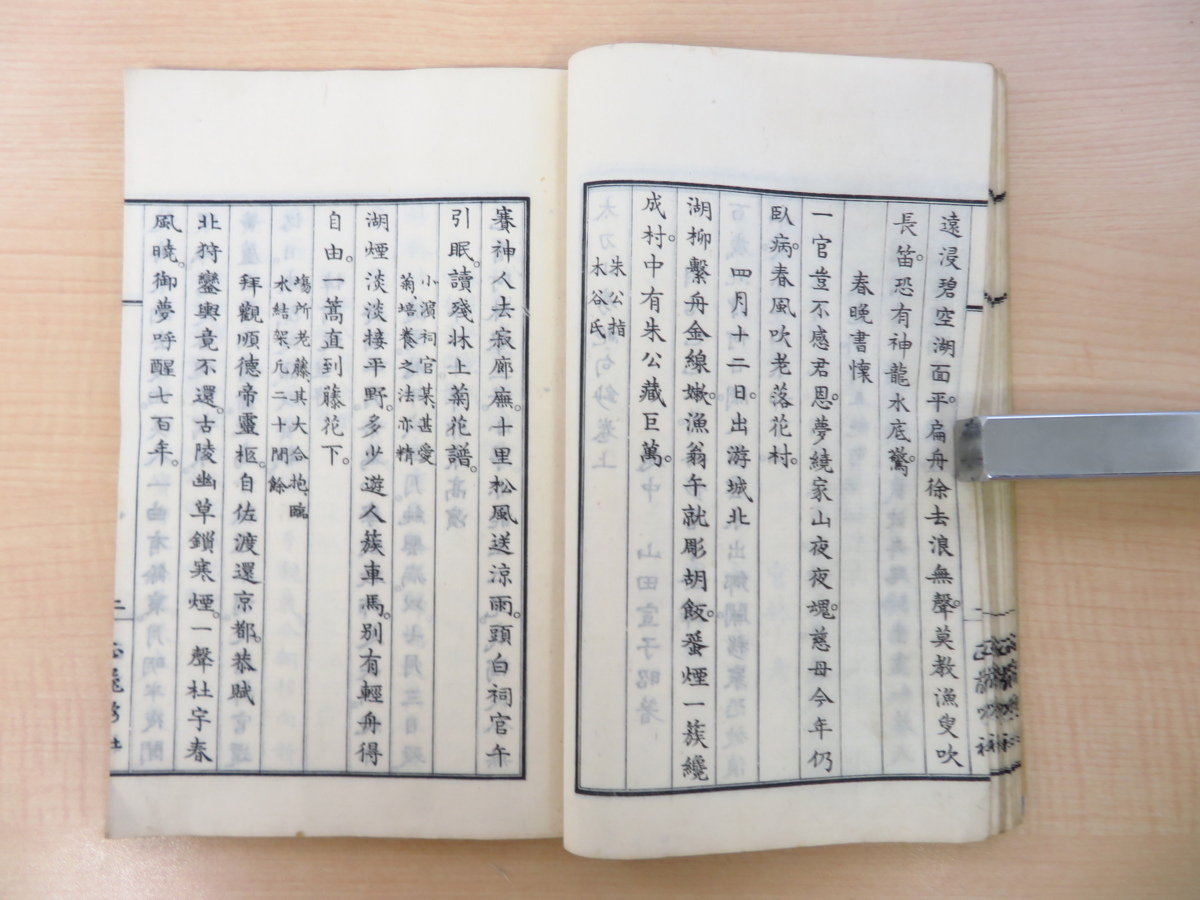 遠浸碧空湖面平。扁舟徐去浪無聲。莫教漁叟吹
長笛。恐有神龍水底驚。
春晚書懷
一官豈不感君恩。夢繞家山夜夜魂。慈母今年仍
臥病。春風吹老落花村。
四月十二日出游城北
湖柳繫舟金線嫩。漁翁午就彫胡飯。蜑煙一簇纔
成村。中有朱公藏巨萬。
朱公指
木谷氏
賽神人去寂廊廡。十里松風送涼雨。頭白祠官午
引眠。讀殘牀上菊花譜。
小濱祠官某甚愛
菊、培養之法亦精
湖煙淡淡接平野。多少遊人簇車馬。別有輕舟得
自由。一蒿直到藤花下。
塲所老藤其大合抱、臨
水結架凡二十閒餘
拜觀順德帝靈柩。自佐渡還京都。恭賦
北狩鑾輿竟不還。古陵幽草鎖寒煙。一聲杜宇春
風曉。御夢呼醒七百年。
二